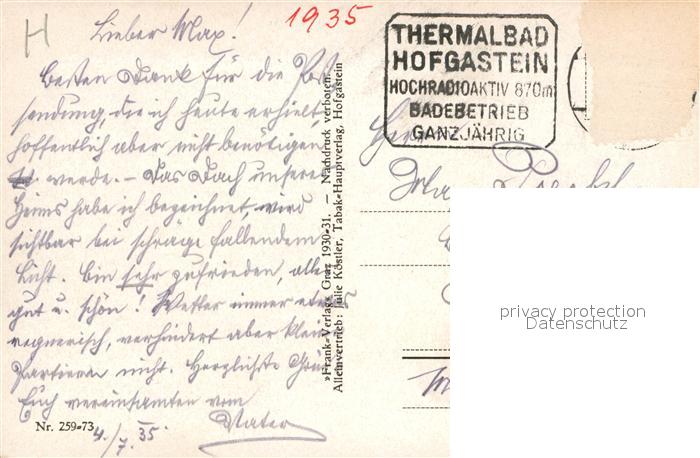 H
1935
Lieber Max!
Besten Dank für die Post
sendung, die ich heute erhielt,
hoffentlich aber nicht benötigen
werde. – Das Dach unseres
Heims habe ich bezeichnet, wird
sichtbar bei schräge fallendem
Licht. Bin sehr zufrieden, alles
gut u. schön! Wetter immer etwas
regnerisch, verhindert aber kleine
Partieen nicht. Herzlichste Grüße
Euch vereinsamten vom
Vater
4./7. 35.
Nr. 259-73
»Frank«-Verlag, Graz 1930-31. — Nachdruck verboten.
Alleinvertrieb: Julie Köstler, Tabak-Hauptverlag, Hofgastein
THERMALBAD
HOFGASTEIN
HOCHRADIOAKTIV 870m
BADEBETRIEB
GANZJÄHRIG
privacy protection
Datenschutz